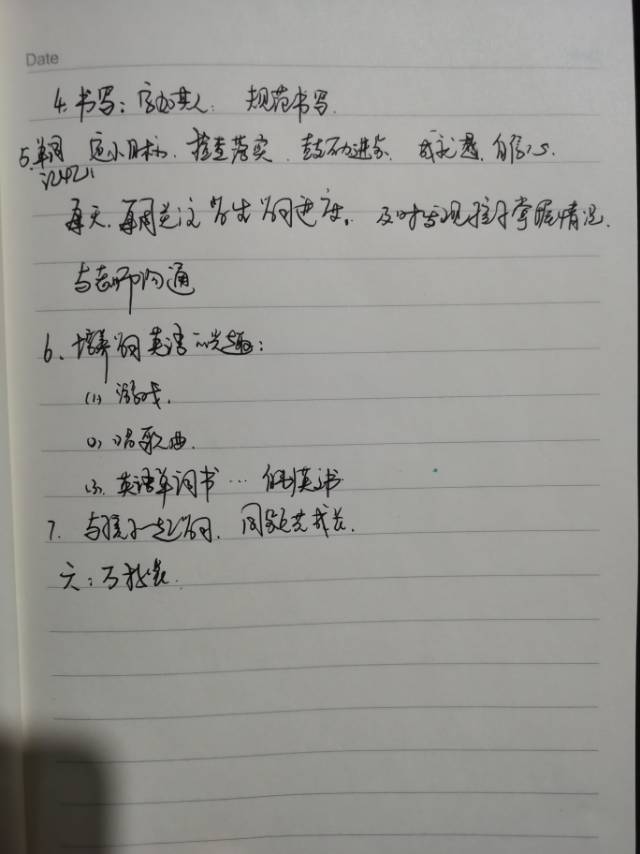 Date
4. 书写：字如其人. 规范书写.
5. 单词 定小目标. 检查落实. 鼓励进步. 成就感. 自信心.
记忆
每天. 每周关注学生学习进度. 及时发现孩子掌握情况.
与老师沟通
6. 培养学习英语兴趣：
(1) 游戏.
(2) 唱歌曲.
(3). 英语单词书 … 英语书
7. 与孩子一起学习. 同频共成长.
六：